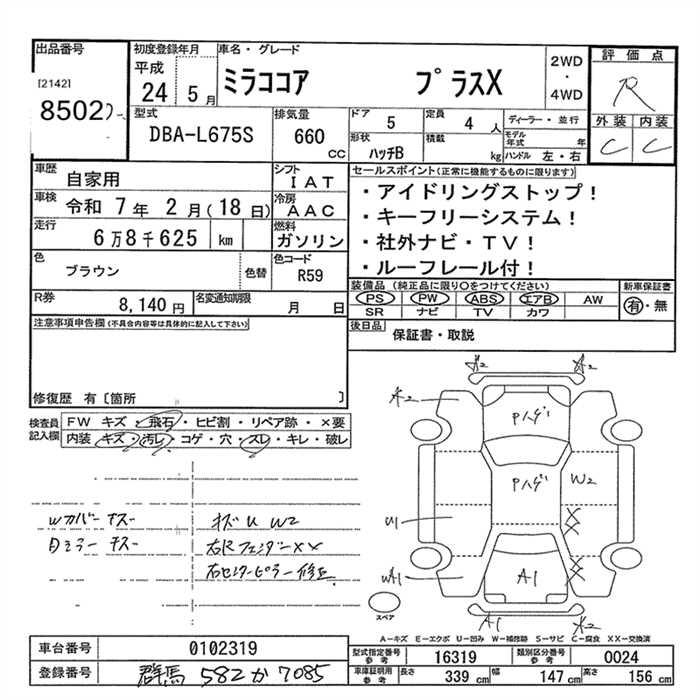 出品番号
[2142]
8502
初度登録年月
平成
24 5 月
車名・グレード
ミラココア プラスX
2WD
・
4WD
評価点
R
外装 内装
C C
型式
DBA-L675S
排気量
660 CC
ドア
5
定員
4 人
形状
ハッチB
積載
kg
ディーラー・並行
モデル年式 年
ハンドル 左・右
車歴
自家用
車検 令和 7 年 2 月 ( 18 日)
走行
6 万 8 千 625 km
色
ブラウン
色替
シフト
I A T
冷房
A A C
燃料
ガソリン
色コード
R59
セールスポイント(正常に機能するものに限ります)
・アイドリングストップ!
・キーフリーシステム!
・社外ナビ・TV!
・ルーフレール付!
装備品 (純正品に限り○をつけてください)
PS PW ABS エアB AW
SR ナビ TV カワ
新車保証書
有・無
R券
8,140 円
名変通知期限
月 日
後日品
保証書・取説
注意事項申告欄(不具合内容等は具体的に記入して下さい)
修復歴 有〔箇所 〕
検査員記入欄
FW キズ・飛石・ヒビ割・リペア跡・×要
内装 キズ・汚レ・コゲ・穴・スレ・キレ・破レ
Wカバー キズ
Dミラー キズ
キズ U W2
右Rフェンダー XX
右センターピラー修正
A2 A2
A2
Pハゲ
Pハゲ
W2
U1
X
X
X
X
UA1
A1
A1 A2
スペア
A-キズ E-エクボ U-凹み W-補修跡 S-サビ C-腐食 XX-交換済
車台番号
0102319
登録番号
群馬 582 か 7085
型式指定番号 参考
16319
類別区分番号 参考
0024
車庫証明用 参考
長さ 339 cm 幅 147 cm 高さ 156 cm